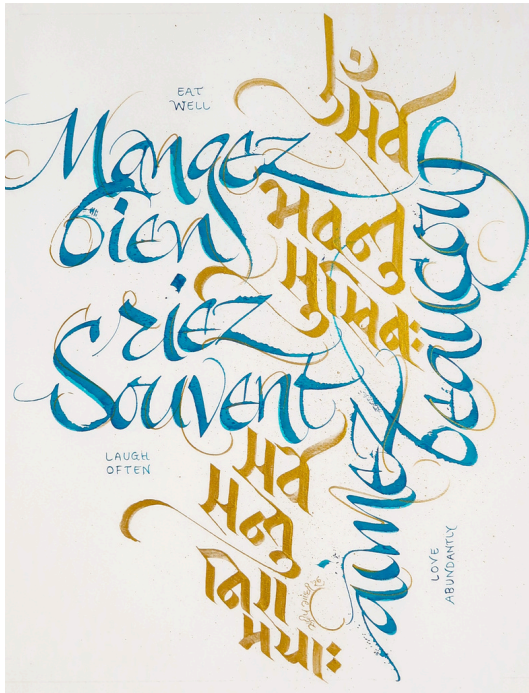 EAT
WELL
Mangez
bien
riez
Souvent
LAUGH
OFTEN
ॐ सर्वे
भवन्तु
सुखिनः
सर्वे
सन्तु
निरा
मयाः
aimez
beaucoup
LOVE
ABUNDANTLY